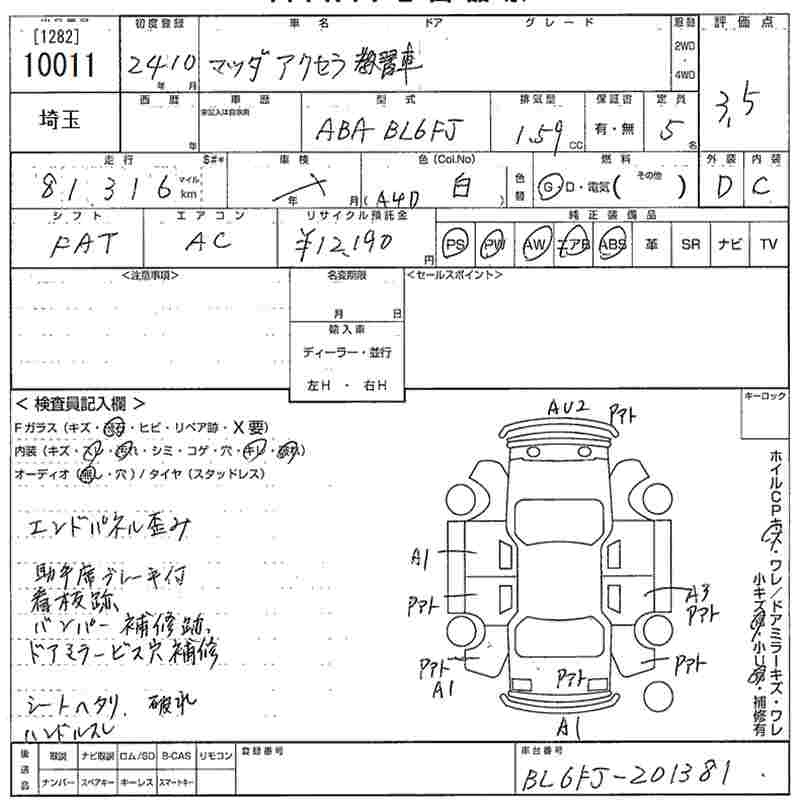 [1282]
10011
埼玉
初度登録
24年10月
車名 ドア グレード
マツダ アクセラ 教習車
2WD
4WD
評価点
3.5
西暦
年
車歴
型式
ABA BL6FJ
排気量
1.59 CC
保証書
有・無
定員
5名
走行
81,316
マイル
km
車検
年 月
色(Col.No)
白
(A4D)
色替
燃料
G・D・電気( その他 )
外装
D
内装
C
シフト
FAT
エアコン
AC
リサイクル預託金
¥12,190円
純正装備品
PS PW AW エアB ABS 革 SR ナビ TV
<注意事項>
名変期限
月 日
輸入車
ディーラー・並行
左H・右H
<セールスポイント>
<検査員記入欄>
キーロック
Fガラス(キズ・ ・ヒビ・リペア跡・X要)
内装(キズ・スレ・汚れ・シミ・コゲ・穴・キレ・破れ)
オーディオ(無し・穴)/タイヤ(スタッドレス)
エンドパネル歪み
助手席ブレーキ付
看板跡
バンパー補修跡
ドアミラービス穴補修
シートヘタリ、破れ
ハンドルスレ
AU2 アト
A1
アト
A3
アト
アト
A1
アト
アト
A1
ホイルCPキズ・ワレ/ドアミラーキズ・ワレ
小キズ ・小U ・補修有
後送品
取説 ナビ取説 ロム/SD B-CAS リモコン
ナンバー スペアキー キーレス スマートキー
登録番号
車台番号
BL6FJ-201381